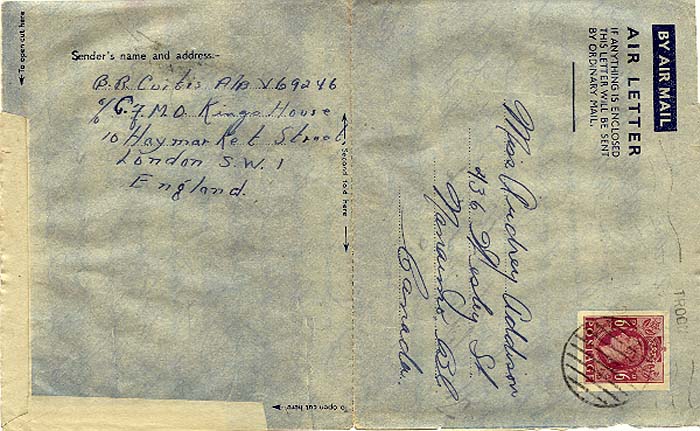 To open cut here
Sender's name and address:-
B. R. Curtis A/B V69246
c/o C. F.M.O. Kings House
10 Haymarket Street
London S.W. 1
England.
Second fold here
To open cut here
BY AIR MAIL
AIR LETTER
IF ANYTHING IS ENCLOSED
THIS LETTER WILL BE SENT
BY ORDINARY MAIL.
Miss Audrey Addison
436 Wesley St
Nanaimo B.C.
Canada.
6D 6D
POSTAGE